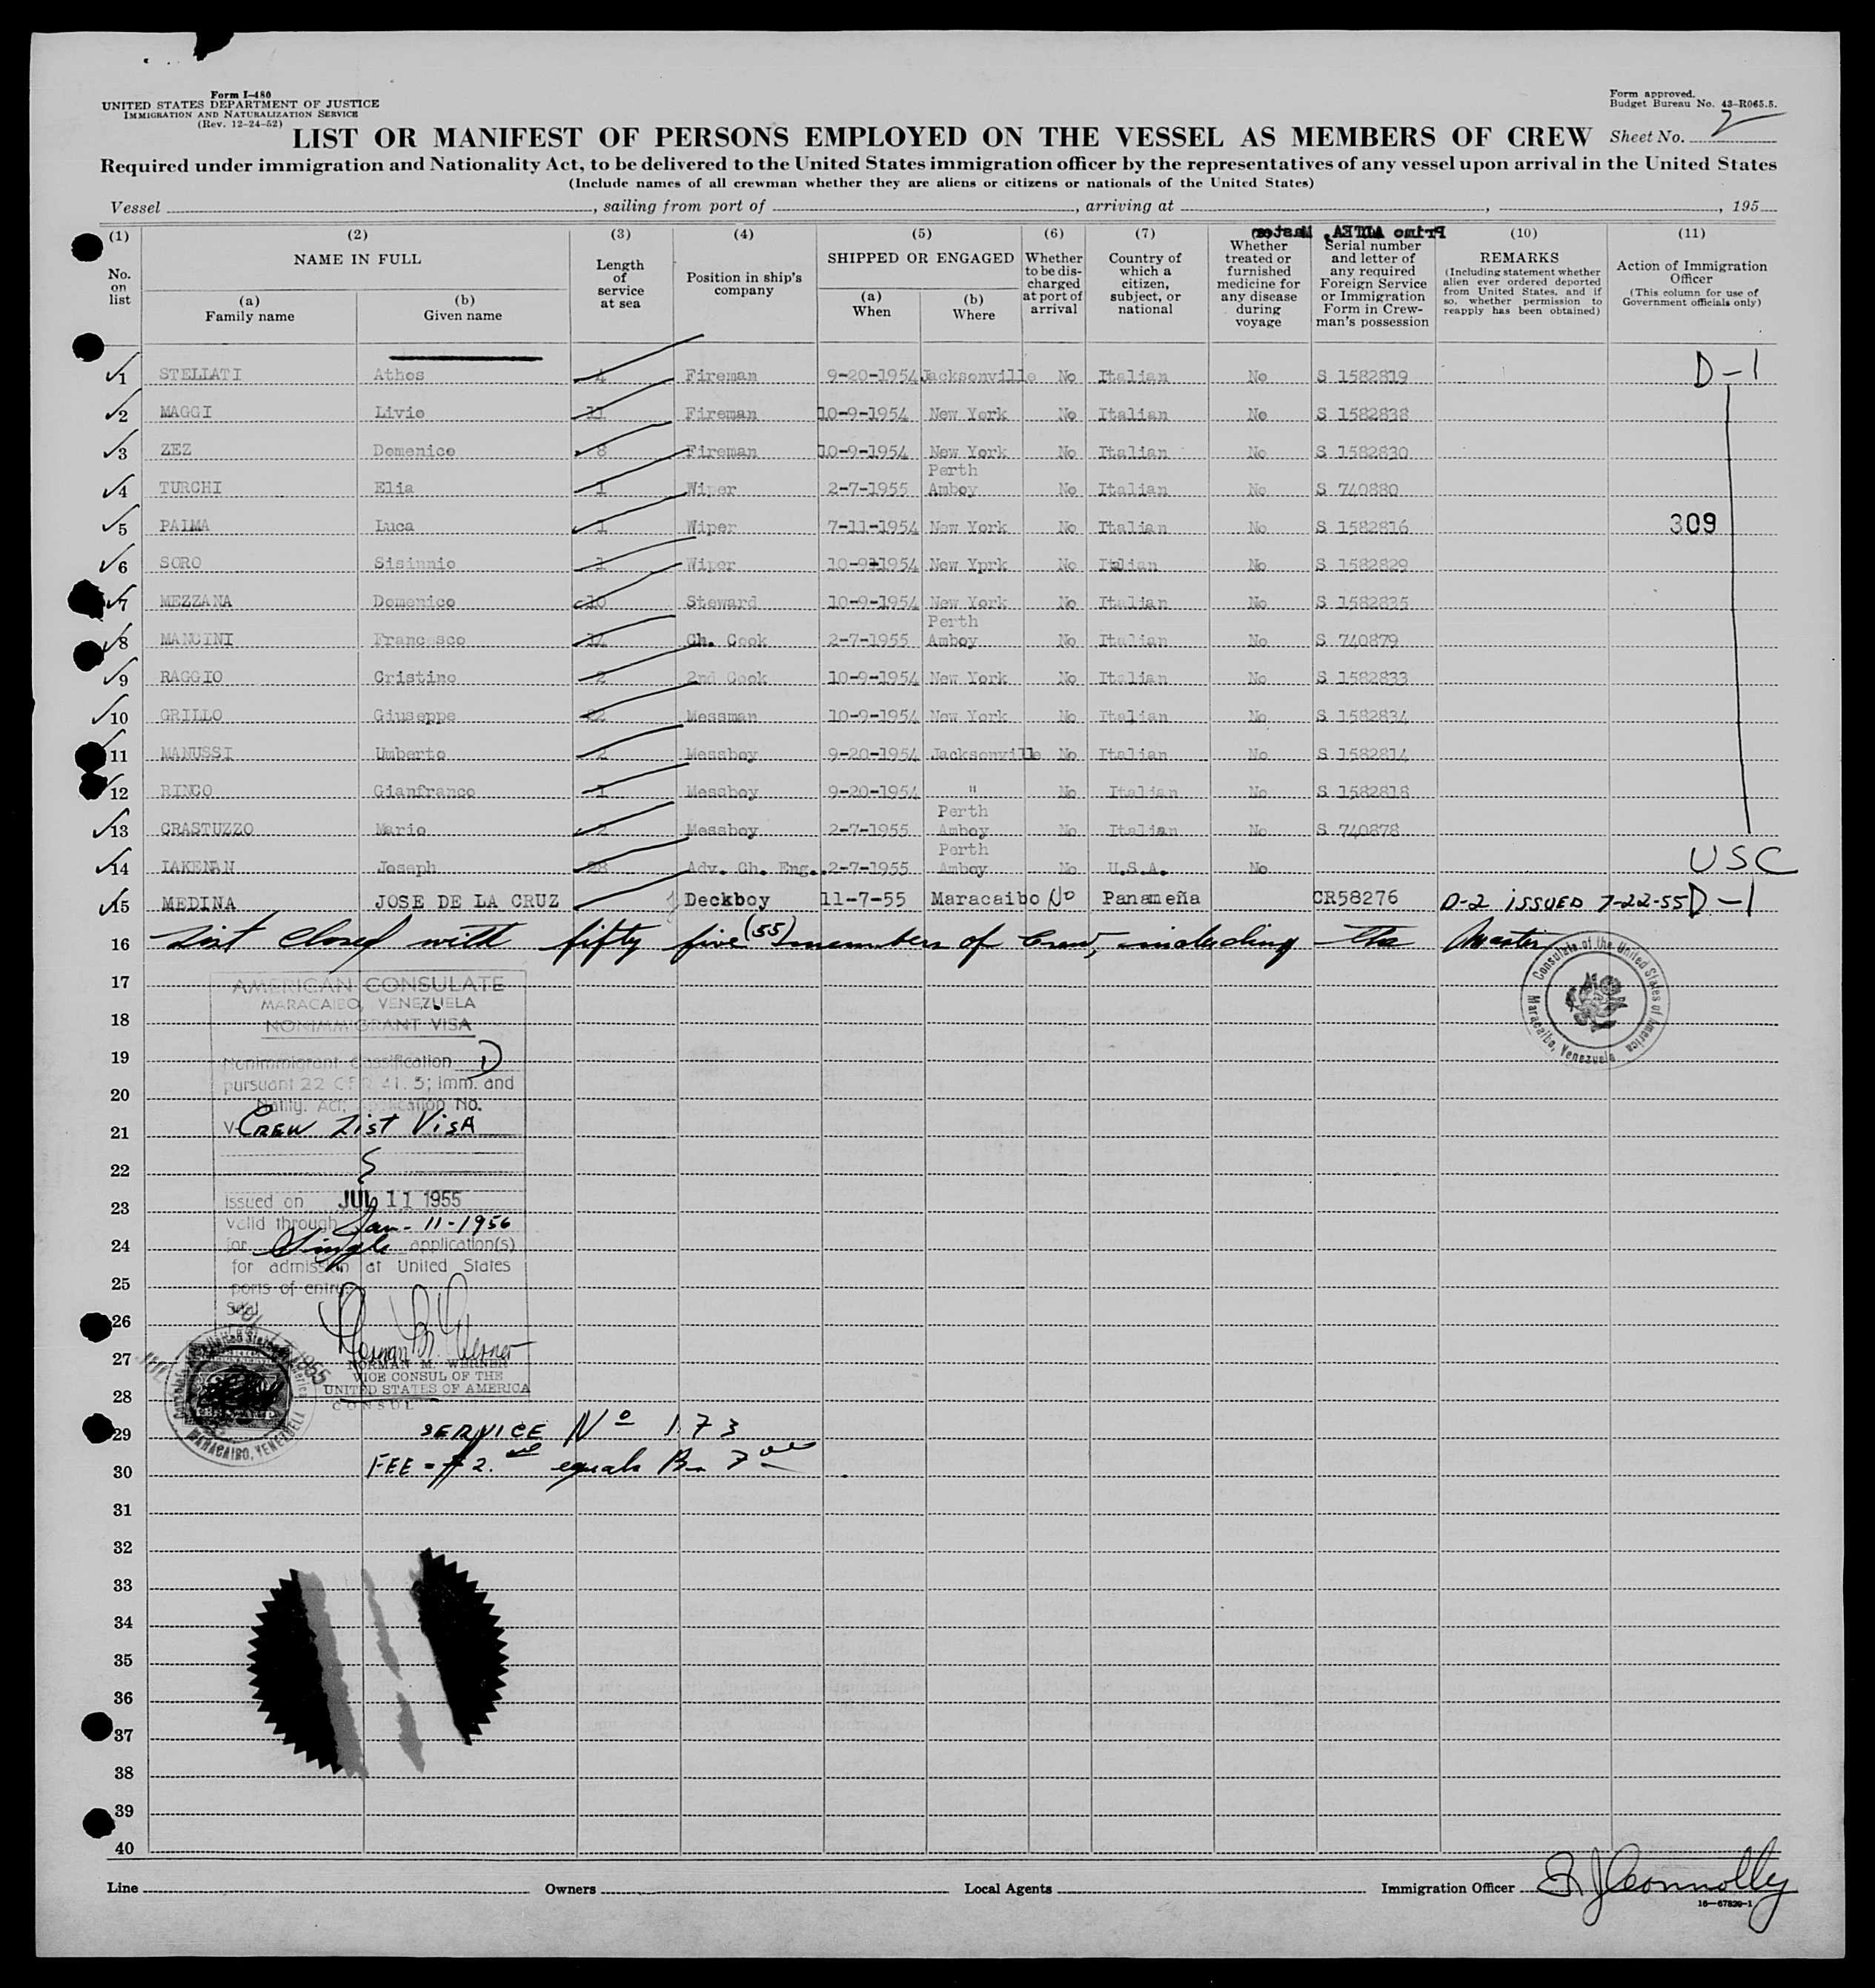 Form I-480
UNITED STATES DEPARTMENT OF JUSTICE
IMMIGRATION AND NATURALIZATION SERVICE
(Rev. 12-24-52)
Form approved.
Budget Bureau No. 43-R065.5.
LIST OR MANIFEST OF PERSONS EMPLOYED ON THE VESSEL AS MEMBERS OF CREW
Sheet No. 2
Required under immigration and Nationality Act, to be delivered to the United States immigration officer by the representatives of any vessel upon arrival in the United States
(Include names of all crewman whether they are aliens or citizens or nationals of the United States)
Vessel , sailing from port of , arriving at , , 195
(1) (2) (3) (4) (5) (6) (7) (10) (11)
No. on list
NAME IN FULL
(a) Family name
(b) Given name
Length of service at sea
Position in ship's company
SHIPPED OR ENGAGED
(a) When
(b) Where
Whether to be discharged at port of arrival
Country of which a citizen, subject, or national
Whether treated or furnished medicine for any disease during voyage
Serial number and letter of any required Foreign Service or Immigration Form in Crewman's possession
REMARKS
(Including statement whether alien ever ordered deported from United States, and if so, whether permission to reapply has been obtained)
Action of Immigration Officer
(This column for use of Government officials only)
1 STELLATI Athos 4 Fireman 9-20-1954 Jacksonville No Italian No S 1582819 D-1
2 MAGGI Livio 11 Fireman 10-9-1954 New York No Italian No S 1582838
3 ZEZ Domenico 8 Fireman 10-9-1954 New York No Italian No S 1582830
4 TURCHI Elia 1 Wiper 2-7-1955 Perth Amboy No Italian No S 740880
5 PALMA Luca 1 Wiper 7-11-1954 New York No Italian No S 1582816 309
6 SORO Sisinnio 1 Wiper 10-9-1954 New Yprk No Italian No S 1582829
7 MEZZANA Domenico 10 Steward 10-9-1954 New York No Italian No S 1582835
8 MANCINI Francesco 14 Ch. Cook 2-7-1955 Perth Amboy No Italian No S 740879
9 RAGGIO Cristino 2 2nd Cook 10-9-1954 New York No Italian No S 1582833
10 GRILLO Giuseppe 22 Messman 10-9-1954 New York No Italian No S 1582834
11 MANUSSI Umberto 2 Messboy 9-20-1954 Jacksonville No Italian No S 1582814
12 RINCO Gianfranco 1 Messboy 9-20-1954 " No Italian No S 1582818
13 CRASTUZZO Mario 2 Messboy 2-7-1955 Perth Amboy No Italian No S 740878
14 LAKENAN Joseph 28 Adv. Ch. Eng. 2-7-1955 Perth Amboy No U.S.A. No USC
15 MEDINA JOSE DE LA CRUZ Deckboy 11-7-55 Maracaibo No Panameña CR58276 D-2 ISSUED 7-22-55 D-1
16 List closed with fifty five (55) members of Crew, including the Master
17
AMERICAN CONSULATE
MARACAIBO, VENEZUELA
18
NONIMMIGRANT VISA
Consulate of the United States of America
Maracaibo, Venezuela
19
Nonimmigrant classification D
pursuant 22 CFR 41.5; Imm. and
20
Natity. Act; Application No.
21
V-CREW List VisA
22
23
Issued on JUL 11 1955
valid through Jan-11-1956
24
for Single application(s)
for admission at United States
25
ports of entry.
Seal
26
27
NORMAN M. WERNER
VICE CONSUL OF THE
UNITED STATES OF AMERICA
28
CONSUL
MARACAIBO, VENEZUELA
29
SERVICE Nº 173
30
FEE = $2.00 equals Bs 7
31
32
33
34
35
36
37
38
39
40
Line Owners Local Agents Immigration Officer E J Connolly
16-67829-1